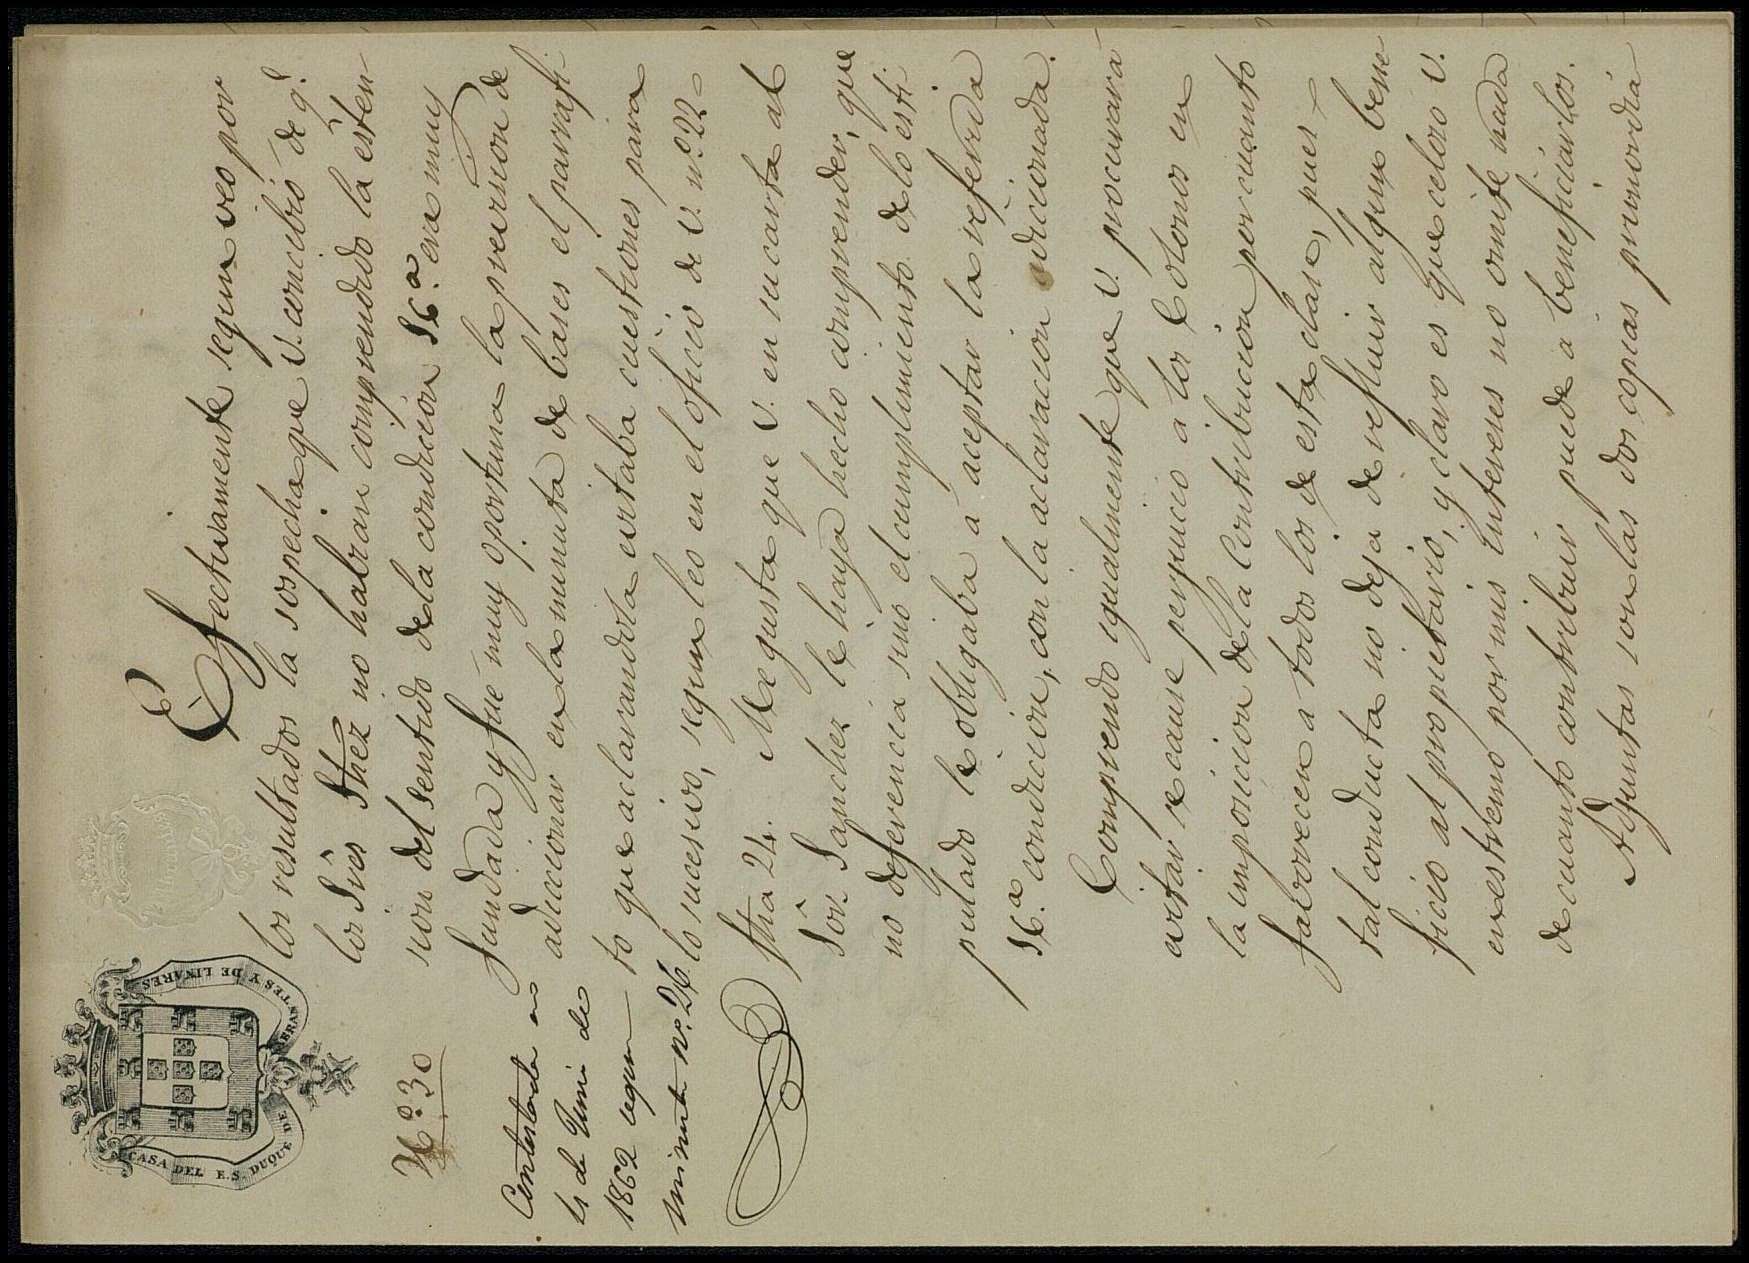 CASA DEL E.S. DUQUE DE ABRANTES Y DE LINARES
N.º 30
Contestada en
11 de Junio de
1862 segun
minuta n.º 26.
Efectivamente segun veo por
los resultados la sospecha que V. concibió de q.e
los Sres Sthez no habrian comprendido la esten-
sion del sentido de la condicion 16.a era muy
fundada y fué muy oportuna la prevision de
adiccionar en la minuta de bases el parrafi-
to que aclarandola evitaba cuestiones para
lo sucesivo, segun leo en el oficio de V. n.º 22
fha 24. Me gusta que V. en su carta al
Sôr. Sanchez le haya hecho comprender, que
no deferencia sino el cumplimiento de lo esti-
pulado le obligaba á aceptar la referida
16.a condicion, con la aclaracion adicionada.
Comprendo igualmente que V. procurará
evitar se cause perjuicio á los Colonos en
la imposicion de la Contribucion por cuanto
favorecen a todos los de esta clase, pues
tal conducta no deja de refluir algun bene-
ficio al propietario, y claro es que celoso V.
en estremo por mis intereses no omite nada
de cuanto contribuir puede á beneficiarlos.
Adjuntas son las dos copias primordia-